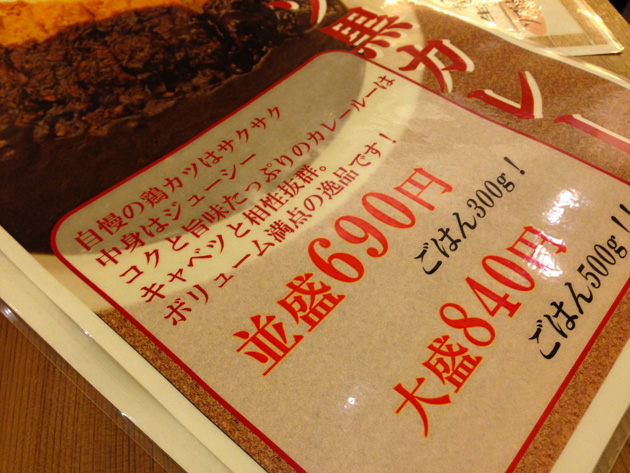 黒カレー
自慢の鶏カツはサクサク
中身はジューシー
コクと旨味たっぷりのカレールーは
キャベツと相性抜群。
ボリューム満点の逸品です！
並盛690円
ごはん300g！
大盛840円
ごはん500g！！